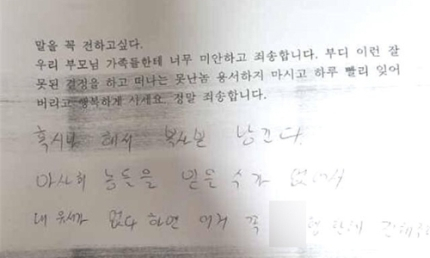 말을 꼭 전하고싶다.
우리 부모님 가족들한테 너무 미안하고 죄송합니다. 부디 이런 잘
못된 결정을 하고 떠나는 못난놈 용서하지 마시고 하루 빨리 잊어
버리고 행복하게 사세요. 정말 죄송합니다.
혹시나 해서 복사본 남긴다.
마사회 놈들을 믿을 수가 없어서
내 유서가 없다 하면 이거 꼭 형한테